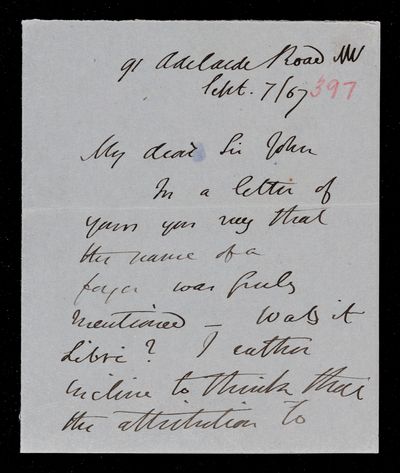 91 Adelaide Road NW
Sept. 7/67 397
My dear Sir John
In a letter of
yours you say that
the name of a
forger was freely
mentioned — Was it
Libri? I rather
incline to think that
the attribution to